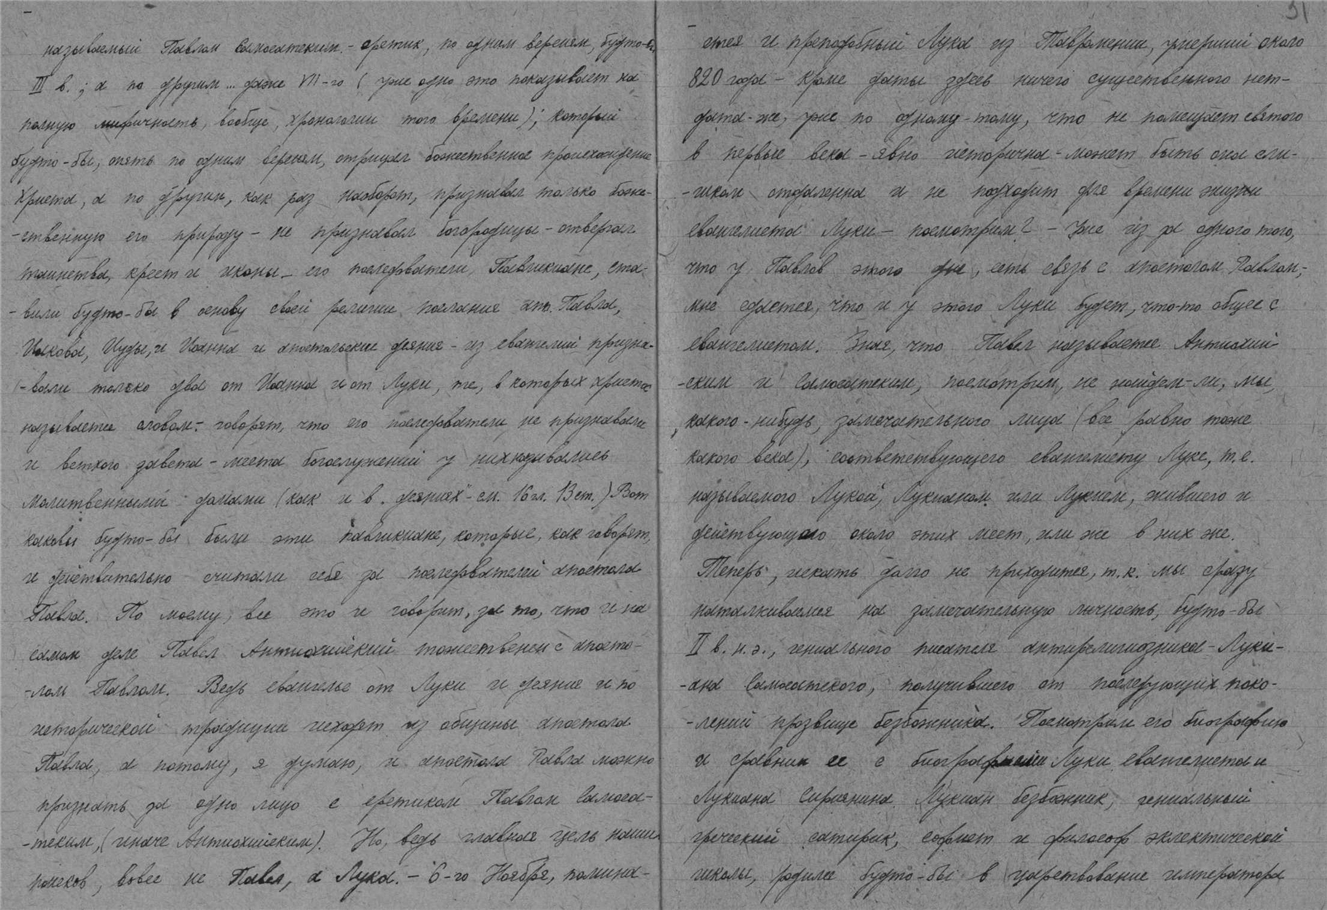 называемый Павлом Самосатским - еретик, по одним версиям, будто-бы
III в.; а по другим... даже VII-го (уже одно это показывает на
полную мифичность, вообще, хронологии того времени); который
будто-бы, опять по одним версиям, отрицал божественное происхождение
Христа, а по другим, как раз наоборот, признавал только боже-
-ственную его природу - не признавал богородицы - отвергал
таинства, крест и иконы - его последователи, Павликиане, ста-
- вили будто-бы в основу своей религии послания ап. Павла,
Иакова, Иуды, и Иоанна и апостольские деяния - из евангелий призна-
-вали только два от Иоанна и от Луки, те, в которых христос
называется словом - говорят, что его последователи, не признавали
и ветхого завета - места богослужений у них назывались
молитвенными домами (как и в „деяниях" - см. 16 гл. 13 ст.) Вот
каковы будто-бы были эти Павликиане, которые, как говорят,
и действительно считали себя за последователей апостола
Павла. По моему, все это и говорит, за то, что и на
самом деле Павел Антиохийский тожественен с апосто-
-лом Павлом. Ведь евангелье от Луки и деяние и по
исторической традиции исходят из общины апостола
Павла, а потому, я думаю, и апостола Павла можно
признать за одно лицо с еретиком Павлом Самоса-
-тским, (иначе Антиохийским). Но, ведь главная цель наших
поисков, вовсе не Павел, а Лука. - 6-го Ноября, помина-
31
ется и преподобный Лука из Тавромении, умерший около
820 года - кроме даты здесь ничего существенного нет -
дата-же, уже по одному-тому, что не помещает святого
в первые века - явно исторична - может быть она сли-
-шком отдаленна и не подходит для времени жизни
евангелиста Луки - посмотрим? - Уже из за одного того,
что у Павлов этого дня, есть связь с апостолом Павлом,
мне сдается, что и у этого Луки будет, что-то общее с
евангелистом. Зная, что Павел называется Антиохий-
-ским и Самосатским, посмотрим, не найдем-ли, мы,
какого-нибудь, замечательного лица (все равно тоже
какого века), соответствующего евангелисту Луке, т.е.
называемого Лукой, Лукианом или Лукием, жившего и
действующего около этих мест, или же в них же.
Теперь, искать долго не приходится, т.к. мы сразу
наталкиваемся на замечательную личность, будто-бы
II в. н.э., гениального писателя антирелигиозника - Луки-
-ана Самосатского, получившего от последующих поко-
-лений прозвище безбожника. Посмотрим его биографию
и сравним ее с биографией Луки евангелиста и
Лукиана Сириянина Лукиан безбожник, гениальный
греческий сатирик, софист и философ эклектической
школы, родился будто-бы в царствование императора